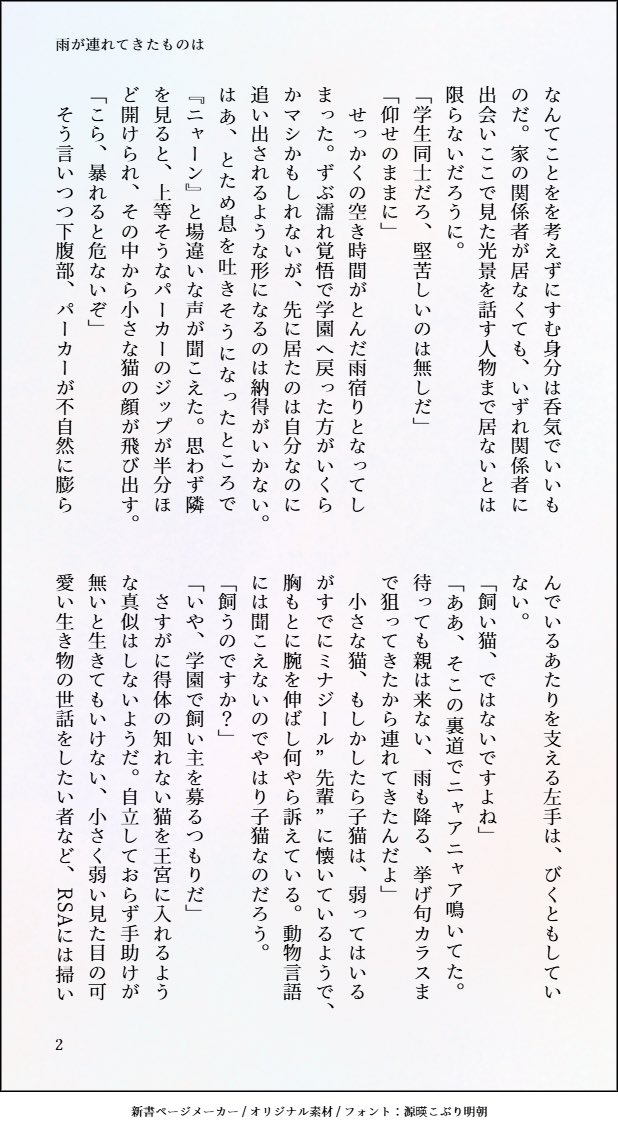 雨が連れてきたものは
なんてことをを考えずにすむ身分は呑気でいいも
のだ。家の関係者が居なくても、いずれ関係者に
出会いここで見た光景を話す人物まで居ないとは
限らないだろうに。
「学生同士だろ、堅苦しいのは無しだ」
「仰せのままに」
　せっかくの空き時間がとんだ雨宿りとなってし
まった。ずぶ濡れ覚悟で学園へ戻った方がいくら
かマシかもしれないが、先に居たのは自分なのに
追い出されるような形になるのは納得がいかない。
はあ、とため息を吐きそうになったところで
『ニャーン』と場違いな声が聞こえた。思わず隣
を見ると、上等そうなパーカーのジップが半分ほ
ど開けられ、その中から小さな猫の顔が飛び出す。
「こら、暴れると危ないぞ」
　そう言いつつ下腹部、パーカーが不自然に膨ら
んでいるあたりを支える左手は、びくともしてい
ない。
「飼い猫、ではないですよね」
「ああ、そこの裏道でニャアニャア鳴いてた。
待っても親は来ない、雨も降る、挙げ句カラスま
で狙ってきたから連れてきたんだよ」
　小さな猫、もしかしたら子猫は、弱ってはいる
がすでにミナジール”先輩”に懐いているようで、
胸もとに腕を伸ばし何やら訴えている。動物言語
には聞こえないのでやはり子猫なのだろう。
「飼うのですか？」
「いや、学園で飼い主を募るつもりだ」
　さすがに得体の知れない猫を王宮に入れるよう
な真似はしないようだ。自立しておらず手助けが
無いと生きてもいけない、小さく弱い見た目の可
愛い生き物の世話をしたい者など、RSAには掃い
2
新書ページメーカー / オリジナル素材 / フォント：源暎こぶり明朝